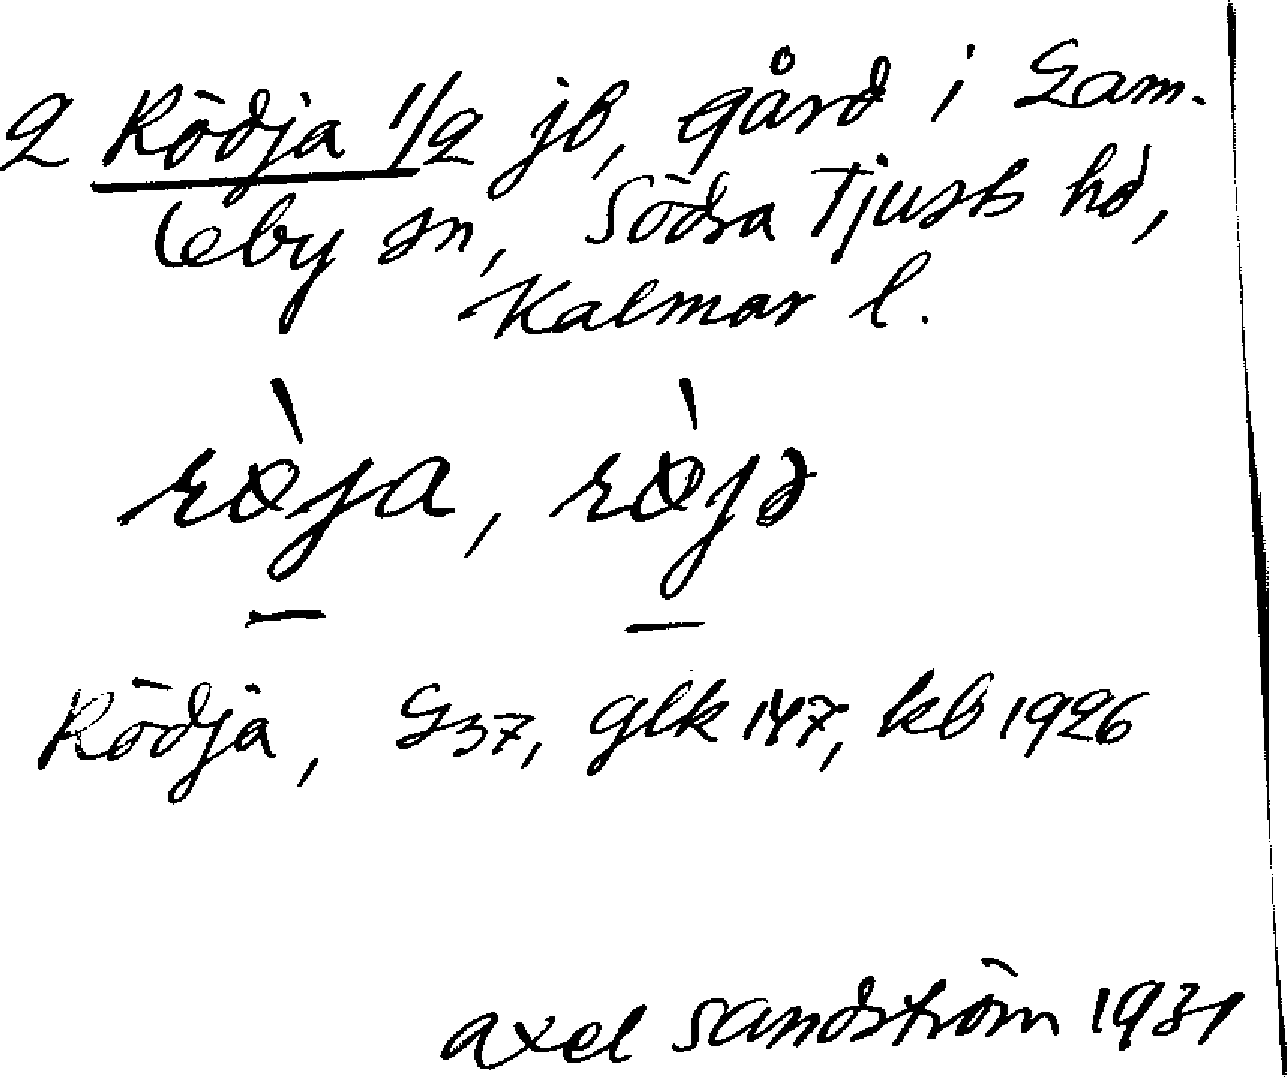 2 Rödja 1/2 jb, gård i Gam-
leby sn, Södra Tjusts hd,
Kalmar l.
rø̀ja, rø̀jə
Rödja, G37, glk 147, kb 1926
axel sandström 1931